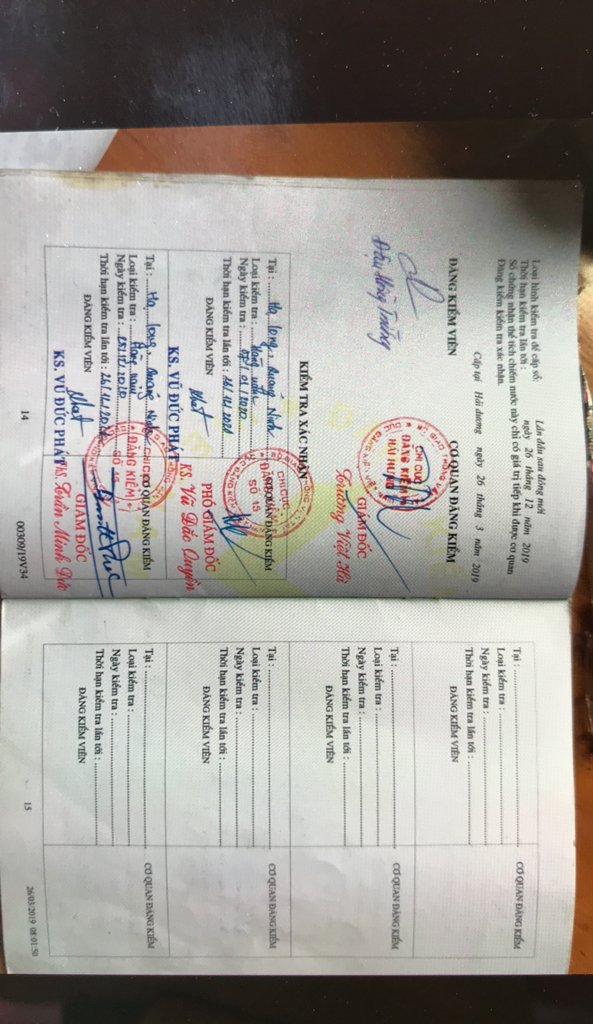 Loại hình kiểm tra để cấp sổ: Lần đầu sau đóng mới
Thời hạn kiểm tra lần tới: ngày 26 tháng 12 năm 2019
Số chứng nhận thể tích chiếm nước này chỉ có giá trị tiếp khi được cơ quan
Đăng kiểm kiểm tra xác nhận.
Cấp tại Hải dương ngày 26 tháng 3 năm 2019
ĐĂNG KIỂM VIÊN
CƠ QUAN ĐĂNG KIỂM
CHI CỤC
ĐĂNG KIỂM
HẢI HƯNG
GIÁM ĐỐC
Trương Việt Hà
KIỂM TRA XÁC NHẬN
Tại : Hạ long, Quảng Ninh
Loại kiểm tra : Hàng năm
Ngày kiểm tra :
Thời hạn kiểm tra lần tới :
ĐĂNG KIỂM VIÊN
KS. VŨ ĐỨC PHÁT
CHI CỤC
ĐĂNG KIỂM
SỐ 15
PHÓ GIÁM ĐỐC
KS Vũ Bảo Quyên
Tại : Hạ long, Quảng Ninh
Loại kiểm tra : Hàng năm
Ngày kiểm tra :
Thời hạn kiểm tra lần tới :
ĐĂNG KIỂM VIÊN
KS. VŨ ĐỨC PHÁT
CƠ QUAN ĐĂNG KIỂM
CHI CỤC
ĐĂNG KIỂM
SỐ 15
GIÁM ĐỐC
KS. Trần Minh Đức
14
00309/19V34
Tại :
Loại kiểm tra :
Ngày kiểm tra :
Thời hạn kiểm tra lần tới :
ĐĂNG KIỂM VIÊN
CƠ QUAN ĐĂNG KIỂM
Tại :
Loại kiểm tra :
Ngày kiểm tra :
Thời hạn kiểm tra lần tới :
ĐĂNG KIỂM VIÊN
CƠ QUAN ĐĂNG KIỂM
Tại :
Loại kiểm tra :
Ngày kiểm tra :
Thời hạn kiểm tra lần tới :
ĐĂNG KIỂM VIÊN
CƠ QUAN ĐĂNG KIỂM
Tại :
Loại kiểm tra :
Ngày kiểm tra :
Thời hạn kiểm tra lần tới :
ĐĂNG KIỂM VIÊN
CƠ QUAN ĐĂNG KIỂM
15
26/03/2019 08:01:50